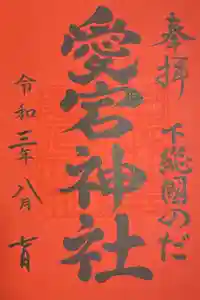 奉拝 下総國のだ
愛宕神社
令和三年 八月 七日